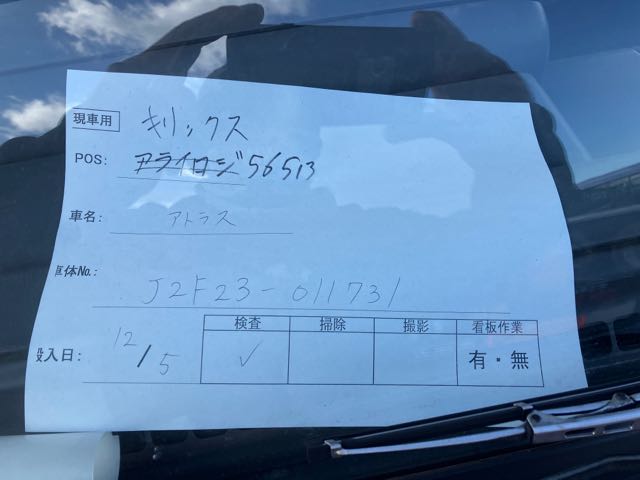 現車用 キリックス
POS: アライロジ 56513
車名: アトラス
車体No.: J2F23-011731
搬入日: 12/5
検査 掃除 撮影 看板作業
✓ 有・無